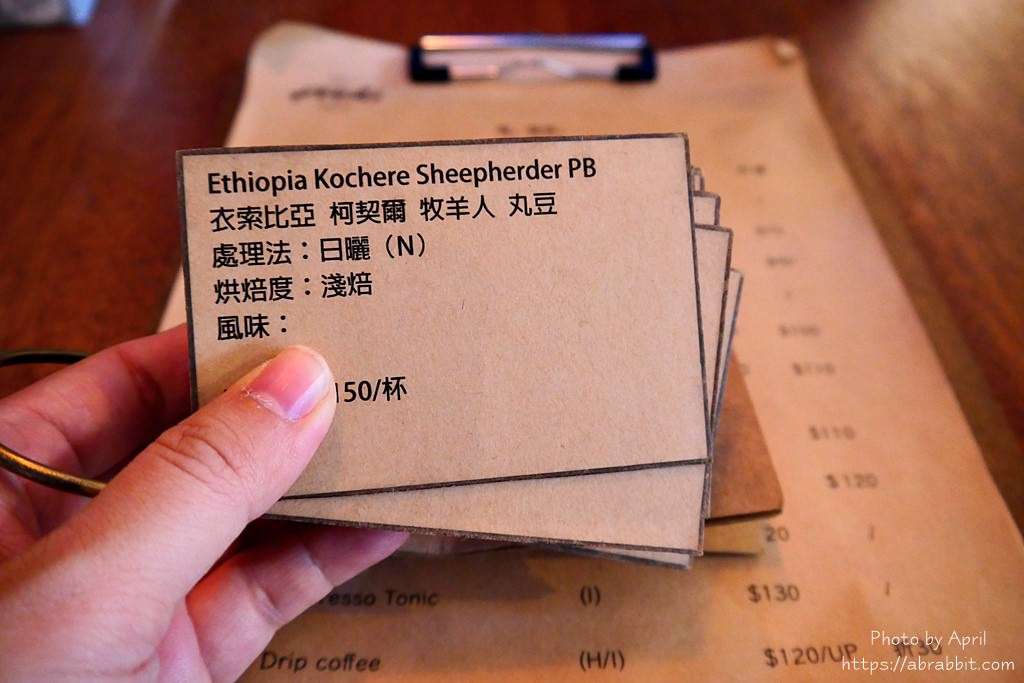 Ethiopia Kochere Sheepherder PB
衣索比亞 柯契爾 牧羊人 丸豆
處理法：日曬（N）
烘焙度：淺焙
風味：
150/杯
$110
$120
20 /
resso Tonic (I) $130 /
Drip coffee (H/I) $120/UP
Photo by April
https://abrabbit.com